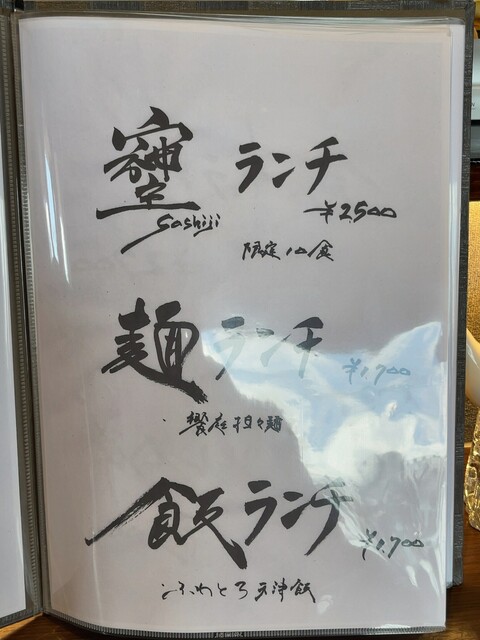 ランチ
¥2,500
sashiji
限定10食
麺ランチ ¥1,700
担々麺
飯ランチ ¥1,700
ふわとろ天津飯